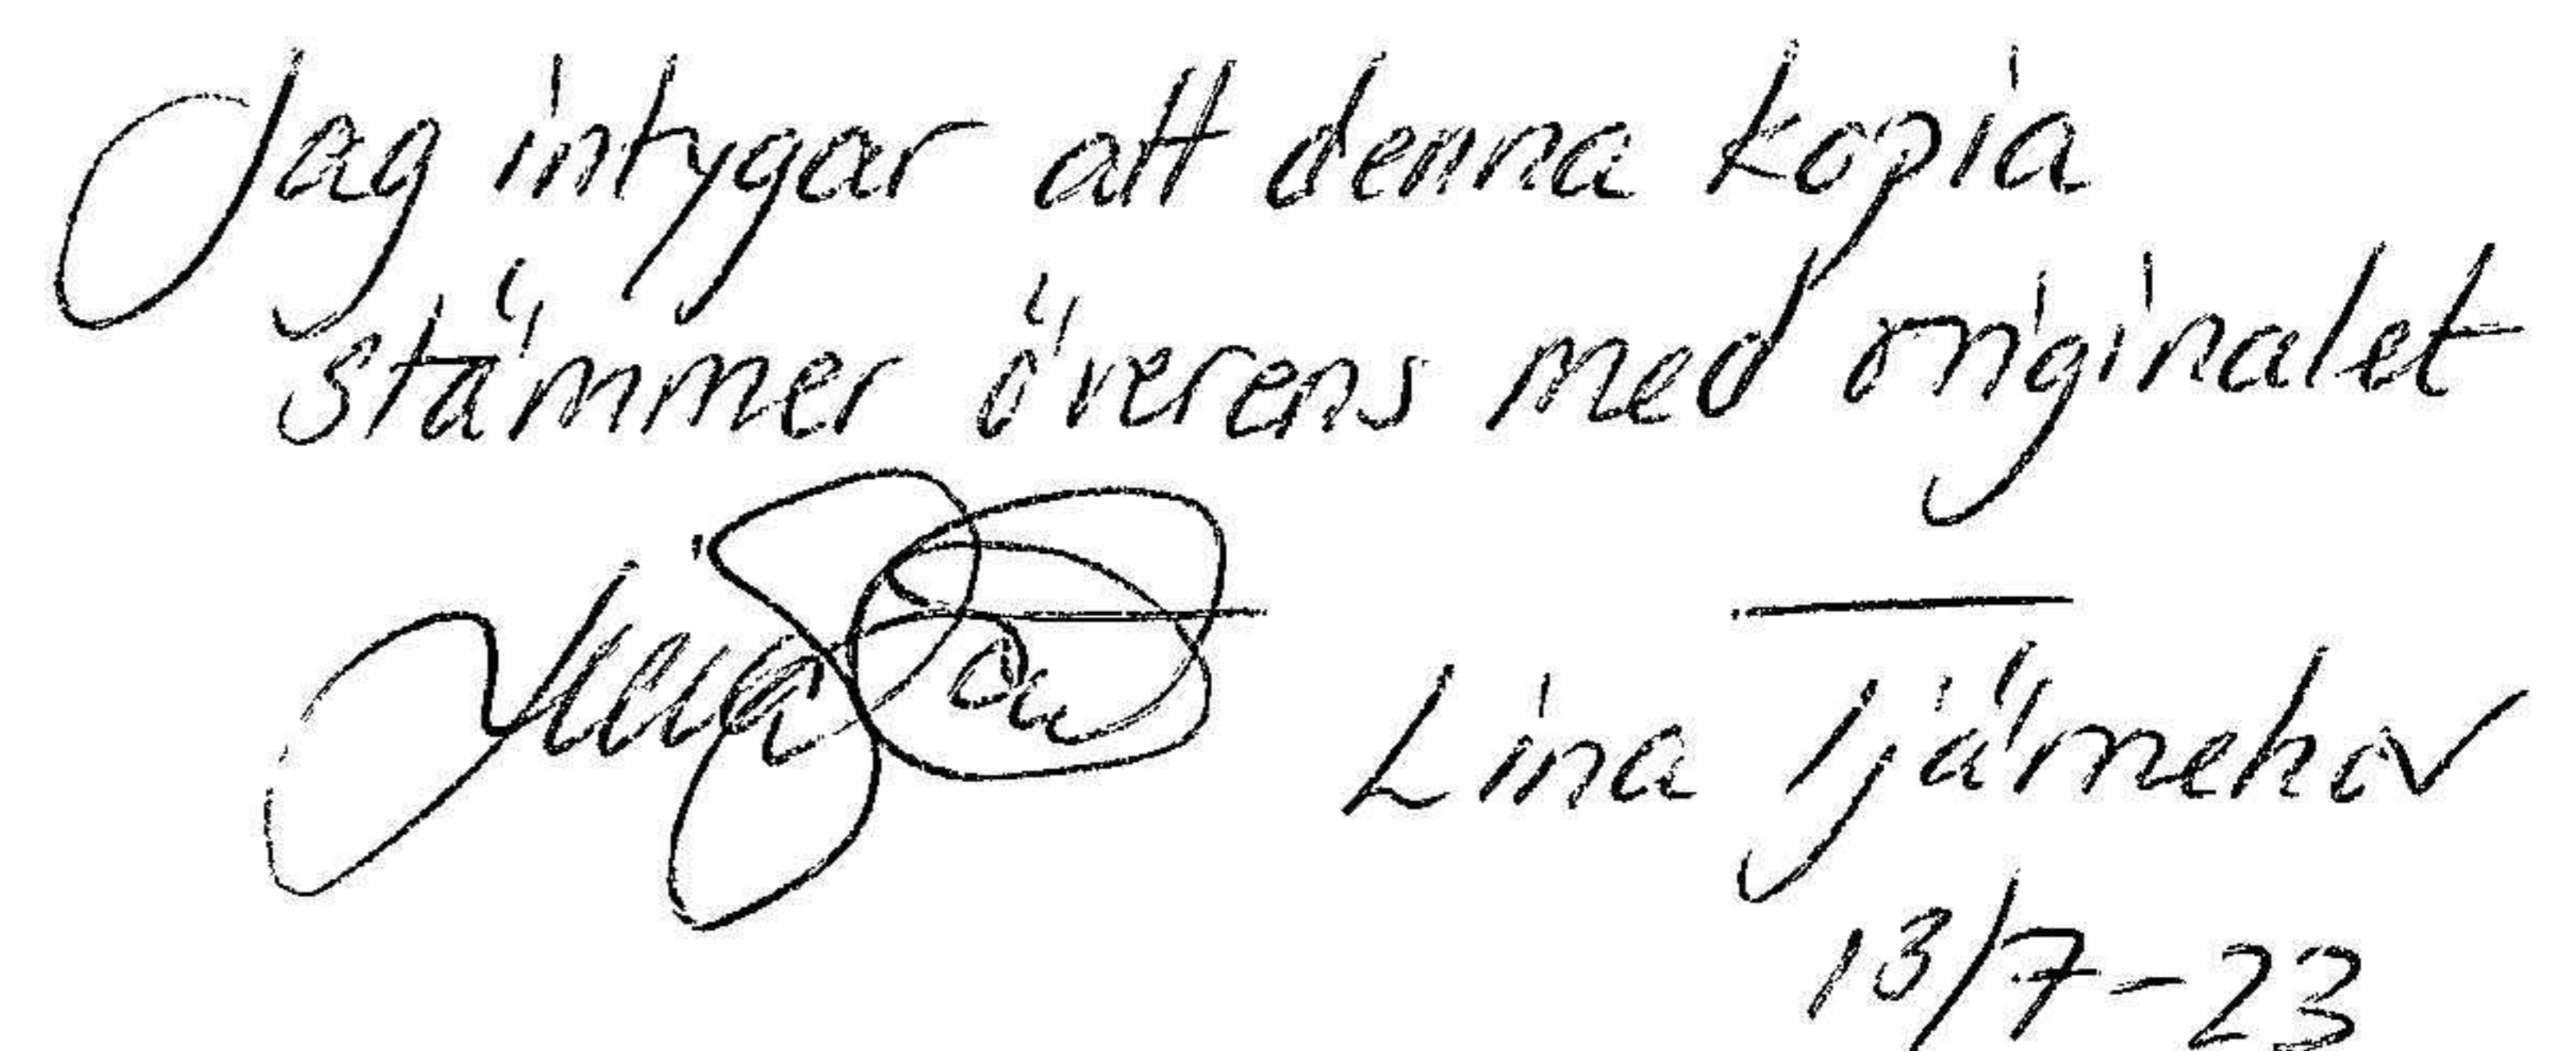 Jag intygar att denna kopia
stämmer överens med originalet
Lina Tjärnehov
13/7-23